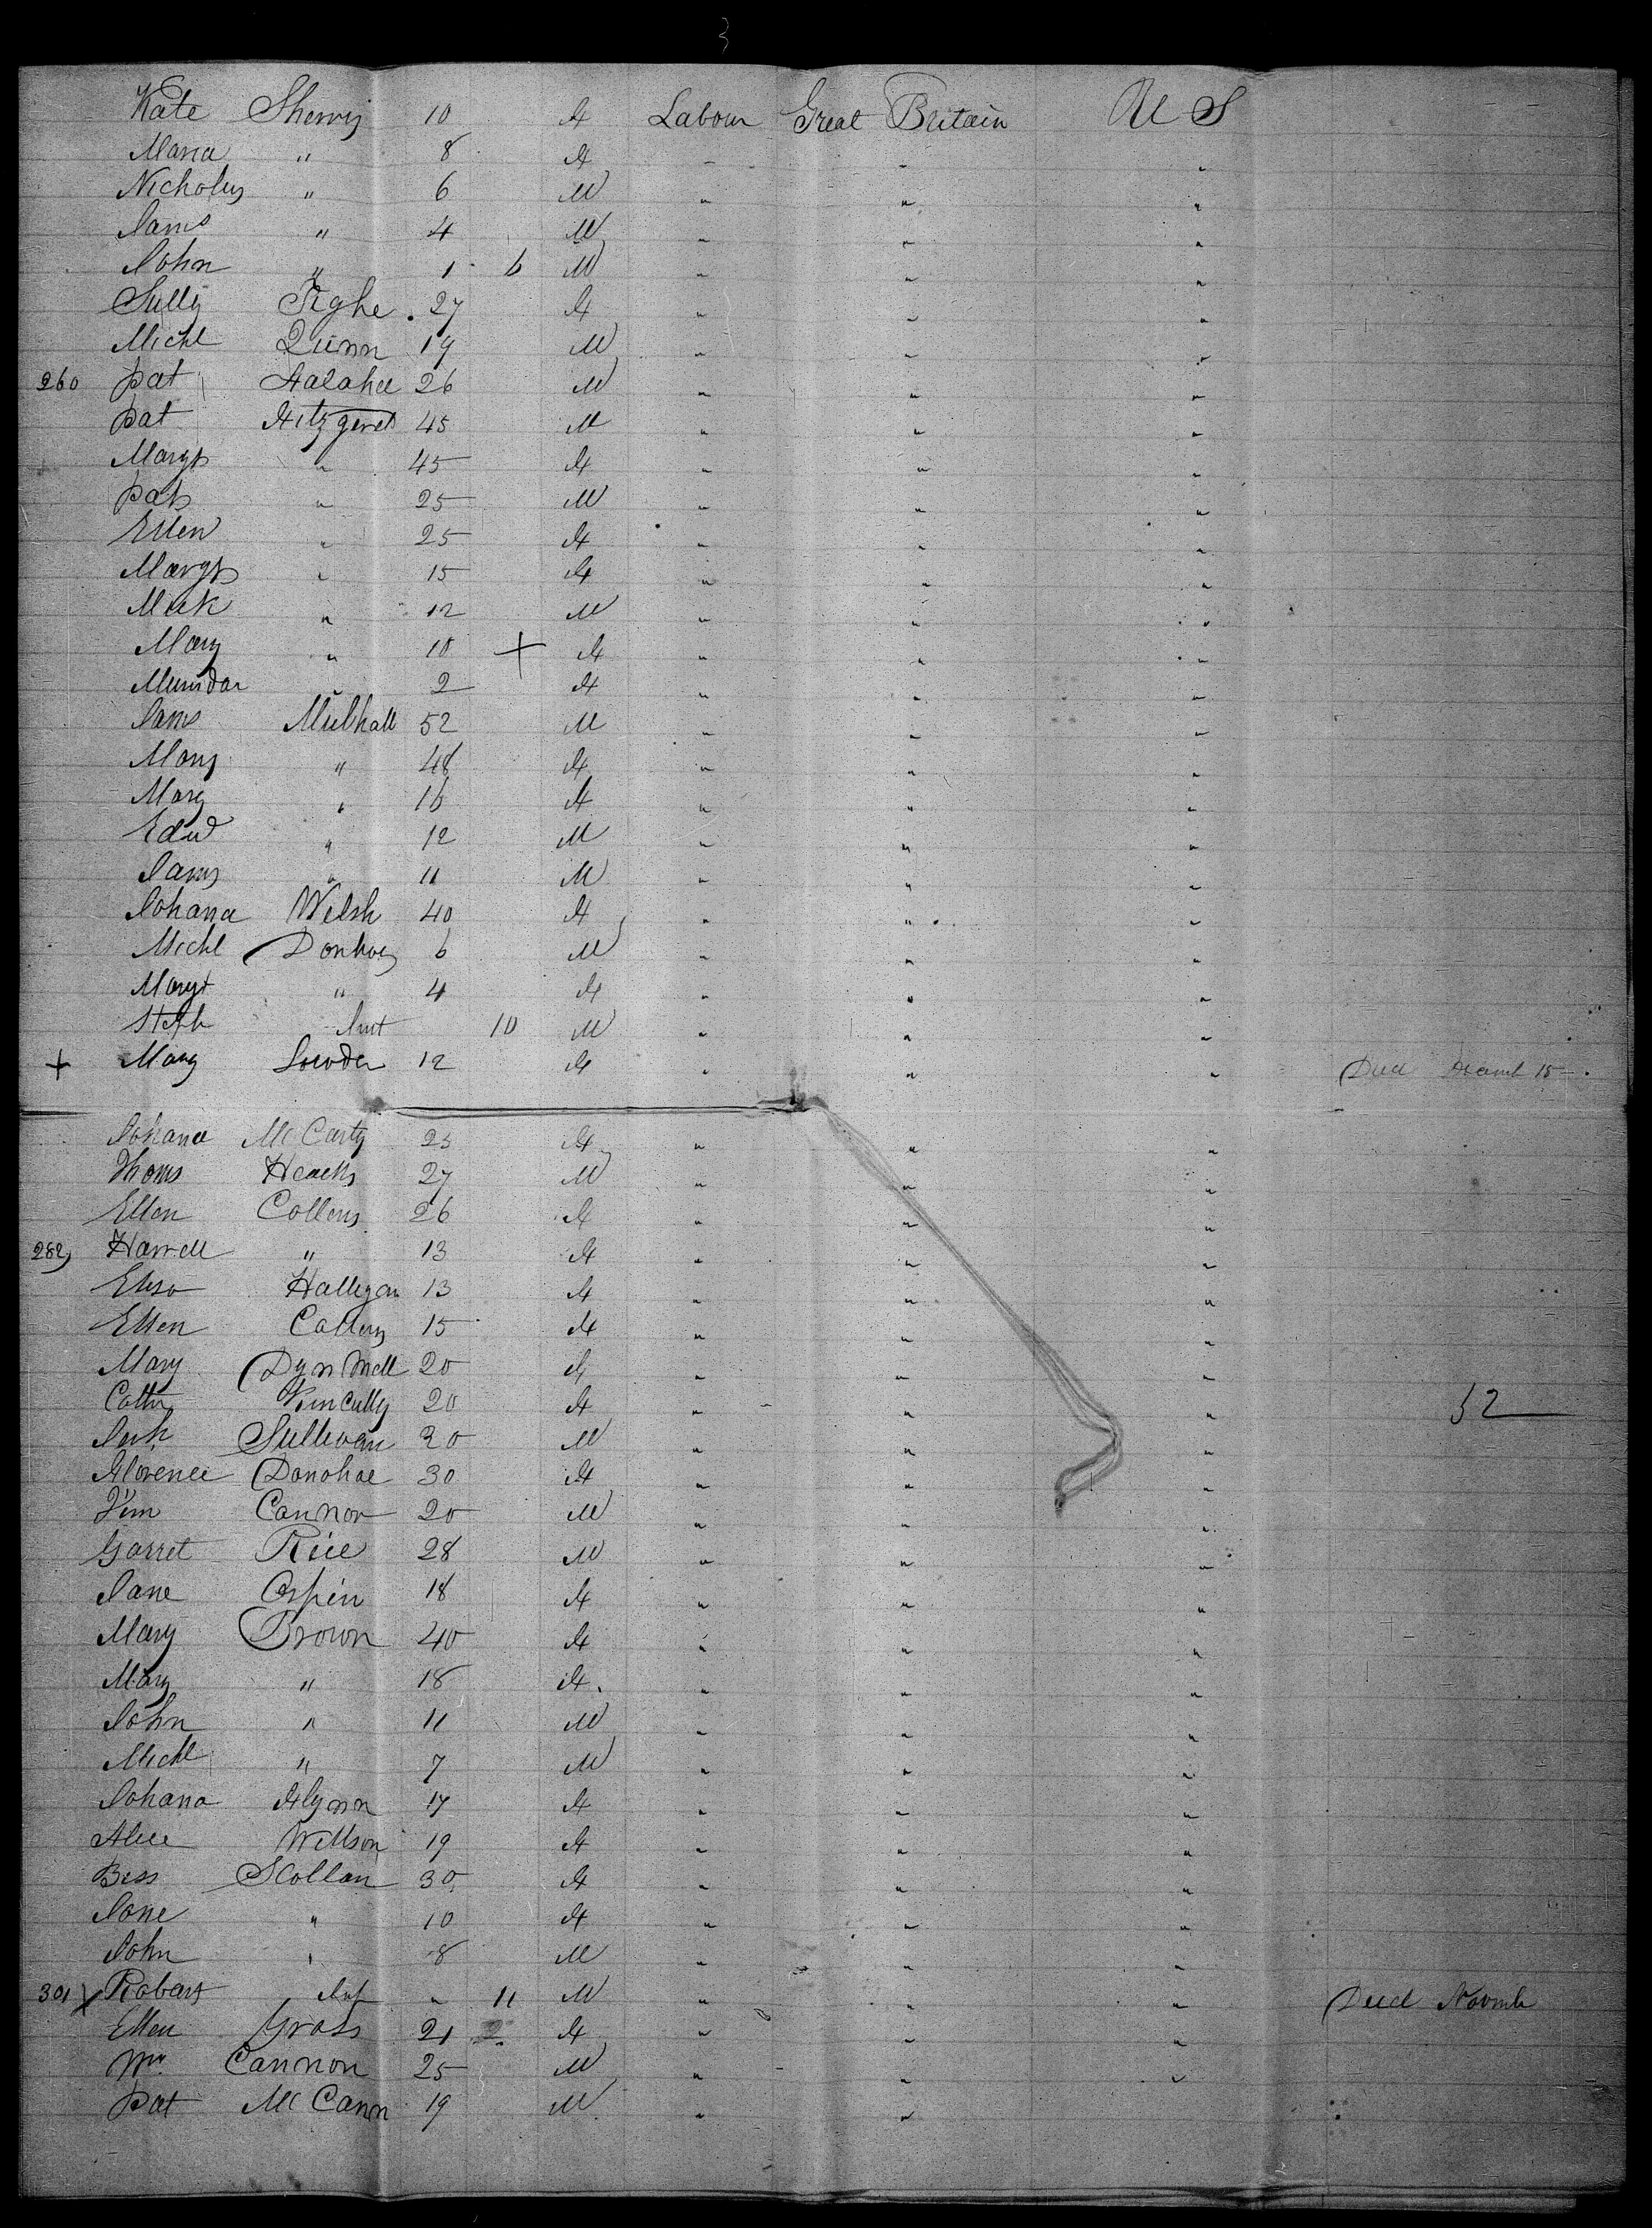 3
Kate Sherry 10 F Labour Great Britain U S
Maria " 8 F " " "
Nicholas " 6 M " " "
James " 4 M " " "
John " 1 6 M " " "
Tighe 27 F " " "
Michl Quinn 19 M " " "
260 Pat 26 M " " "
Pat Fitzgerel 45 M " " "
Margt " 45 F " " "
Pat " 25 M " " "
Ellen " 25 F " " "
Margt " 15 F " " "
" 12 M " " "
Mary " 10 + F " " "
" 2 F " " "
James Mulhall 52 M " " "
Mary " 48 F " " "
Mary " 16 F " " "
Edwd " 12 M " " "
James " 11 M " " "
Johana Welsh 40 F " " "
Michl Donhoey 6 M " " "
Margt " 4 F " " "
Inft 10 M " " "
+ Mary Lowder 12 F " " " Died 15
Johana McCarty 25 F " " "
Thoms 27 M " " "
Ellen Collens 26 F " " "
282 " 13 F " " "
Elisa Halligan 13 F " " "
Ellen 15 F " " "
Mary 20 F " " "
Cathr 20 F " " " 52
Sullivan 20 M " " "
Florence Donohoe 30 F " " "
Tim Cannon 20 M " " "
Garret Rice 28 M " " "
Jane Aspin 18 F " " "
Mary Brown 40 F " " "
Mary " 18 F " " "
John " 11 M " " "
Michl " 7 M " " "
Johana Flynn 17 F " " "
Alice Willson 19 F " " "
Bess Scollan 30 F " " "
Jane " 10 F " " "
John " 8 M " " "
301 x Robart Inft " 11 M " " " Died Novmb
Ellen Grass 21 F " " "
Wm Cannon 25 M " " "
Pat McCann 19 M " "